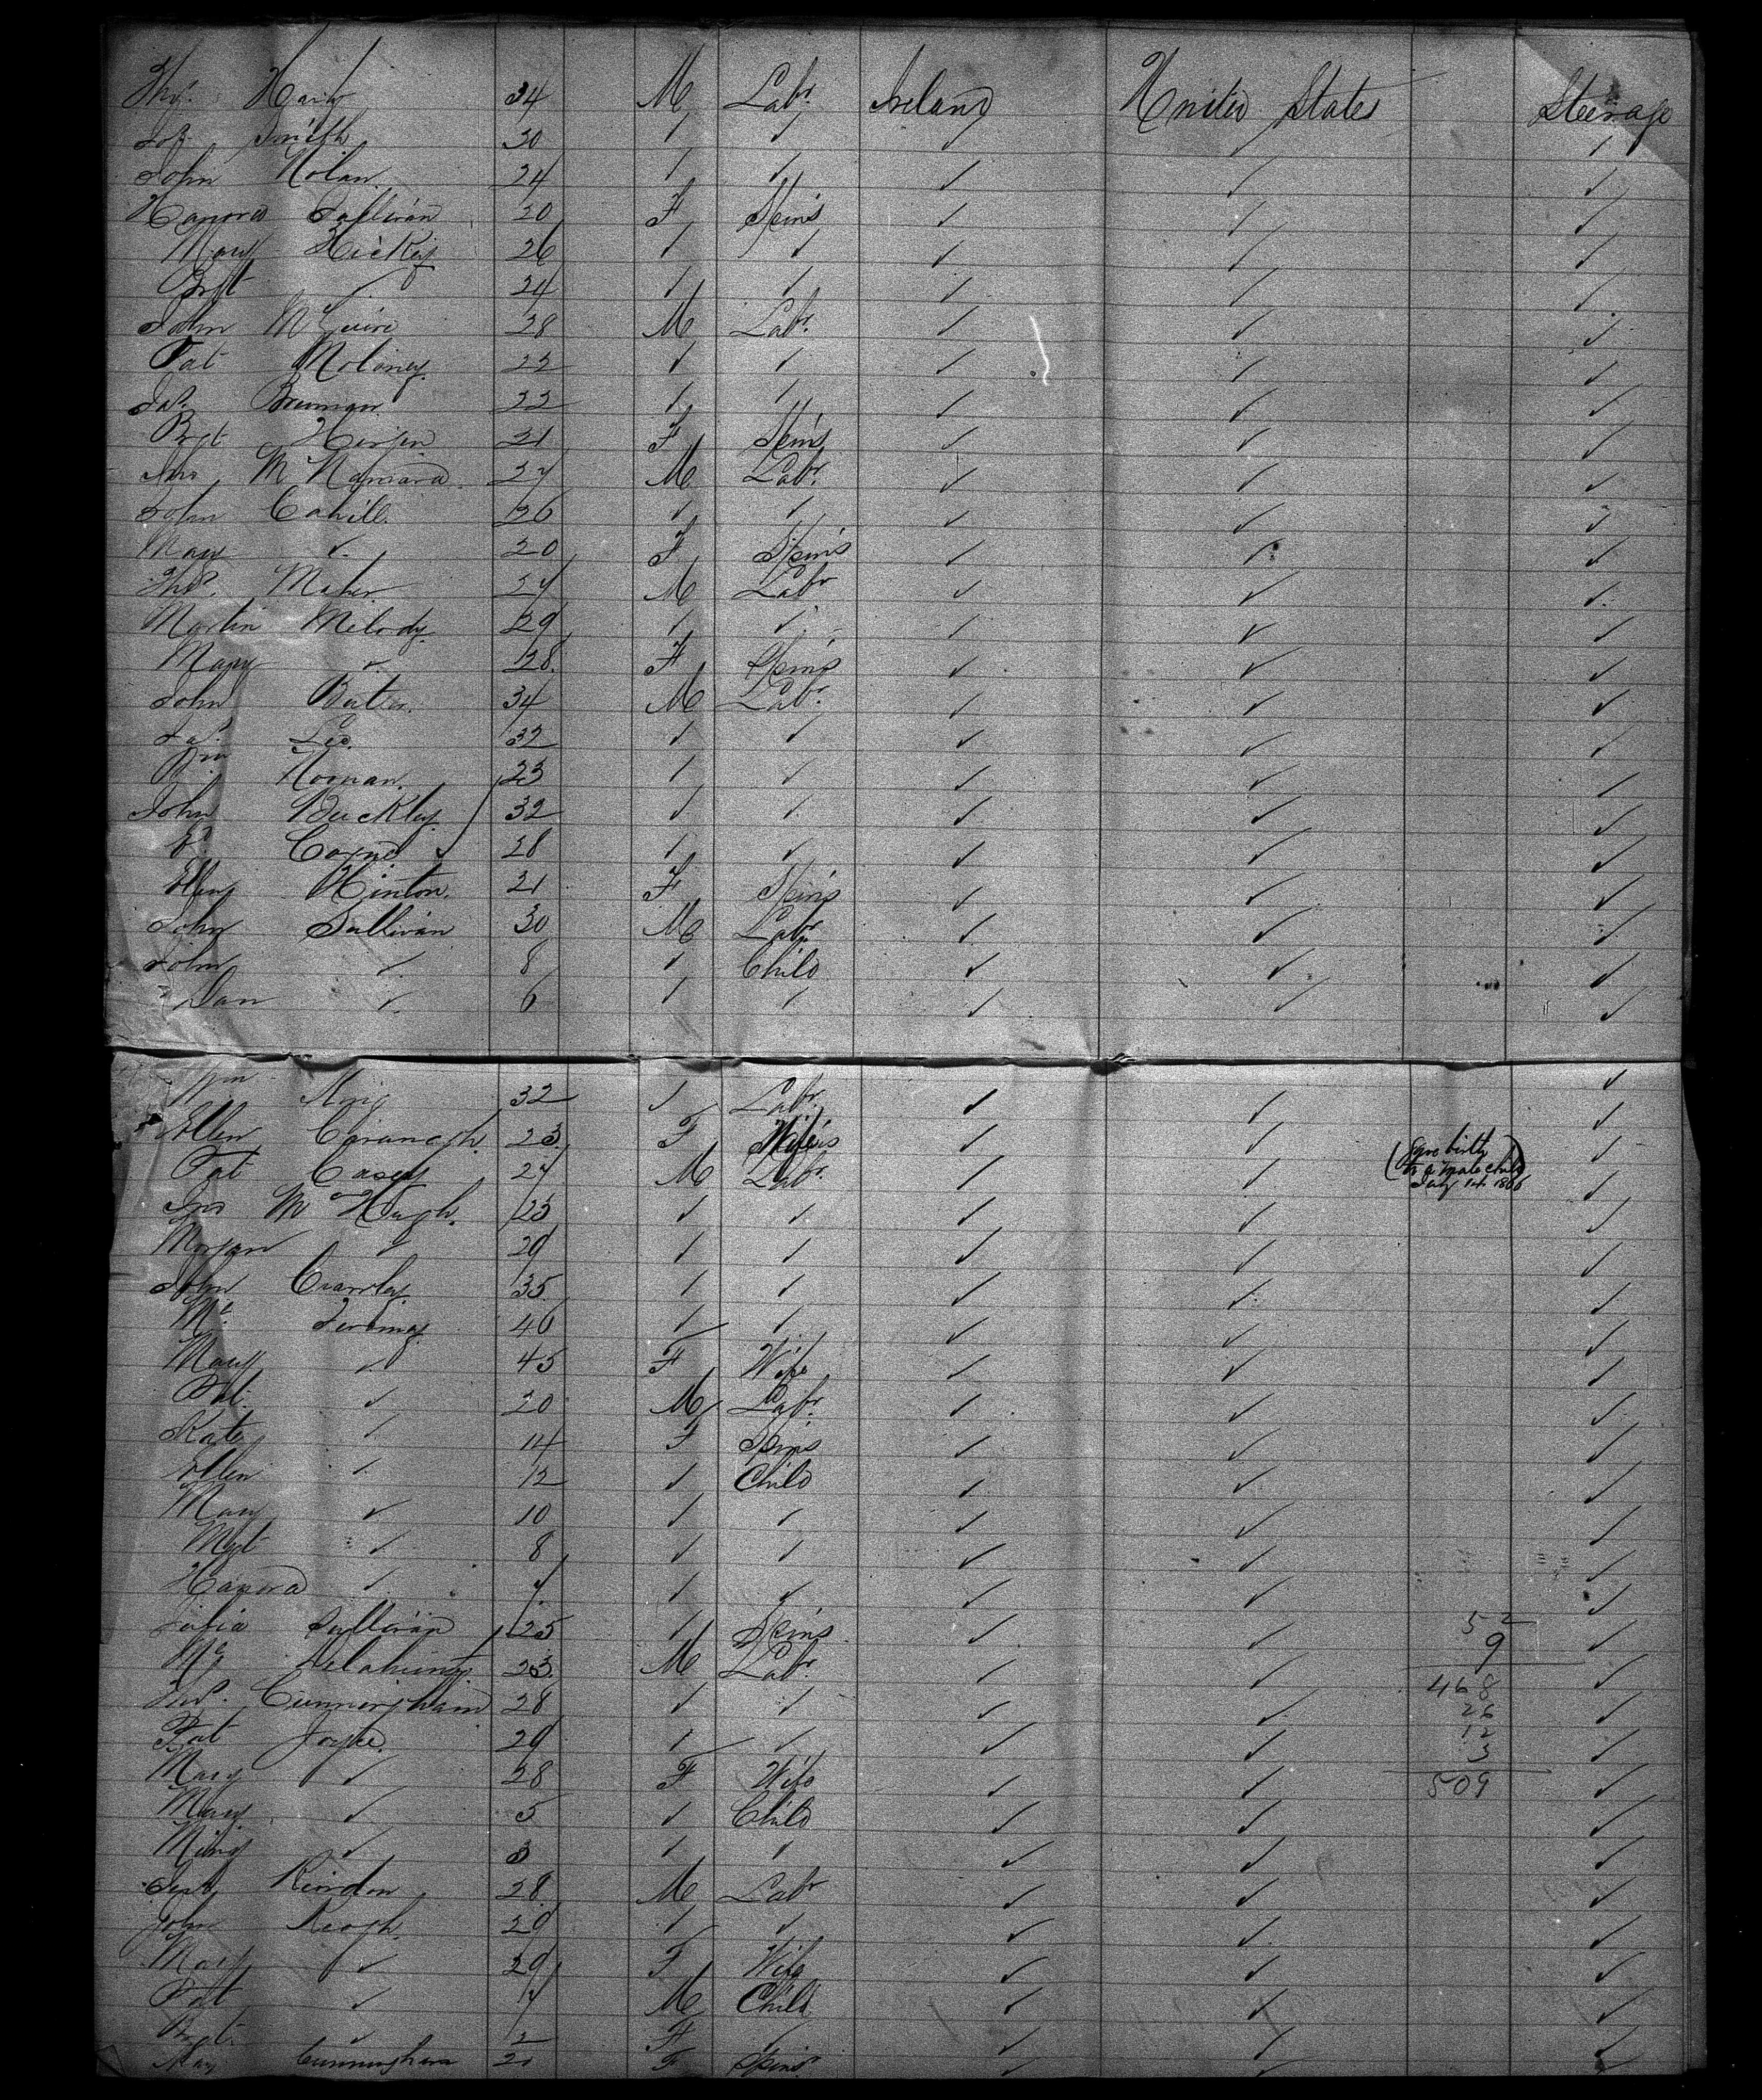 34 M Labr Ireland United States Steerage
Smith 30 ✓ ✓ ✓ ✓ ✓
John Nolan 24 ✓ ✓ ✓ ✓ ✓
Hanora Sullivan 20 F Spins ✓ ✓ ✓
Mary Hickey 26 ✓ ✓ ✓ ✓ ✓
Brgt ✓ 24 ✓ ✓ ✓ ✓ ✓
John McGuire 28 M Labr ✓ ✓ ✓
Pat Moloney 22 ✓ ✓ ✓ ✓ ✓
Jas. Brennan 22 ✓ ✓ ✓ ✓ ✓
Brgt 21 F Spins ✓ ✓ ✓
Jno McNamara 27 M Labr. ✓ ✓ ✓
John Cahill 26 ✓ ✓ ✓ ✓ ✓
Mary ✓ 20 F Spins ✓ ✓ ✓
Thos. Maher 27 M Labr ✓ ✓ ✓
Martin Melody 29 ✓ ✓ ✓ ✓ ✓
Mary ✓ 28 F Spins ✓ ✓ ✓
John Butler 34 M Labr. ✓ ✓ ✓
Jas. Lee 32 ✓ ✓ ✓ ✓ ✓
Wm Noonan 23 ✓ ✓ ✓ ✓ ✓
John Buckley 32 ✓ ✓ ✓ ✓ ✓
Coyne 28 ✓ ✓ ✓ ✓ ✓
Ellen Hinton 21 F Spins ✓ ✓ ✓
John Sullivan 30 M Labr ✓ ✓ ✓
John ✓ 8 ✓ Child ✓ ✓ ✓
Dan ✓ 6 ✓ ✓ ✓ ✓ ✓
Wm King 32 ✓ Labr. ✓ ✓ ✓
Ellen Cavanagh 23 F ✓ ✓ (Gave birth to a male child July 1st 1866) ✓
Pat Casey 27 M Labr. ✓ ✓ ✓
Jno McHugh 23 ✓ ✓ ✓ ✓ ✓
Morgan ✓ 29 ✓ ✓ ✓ ✓ ✓
John Crawley 35 ✓ ✓ ✓ ✓ ✓
46 ✓ ✓ ✓ ✓ ✓
Mary ✓ 45 F Wife ✓ ✓ ✓
Pat. ✓ 20 M Labr. ✓ ✓ ✓
Kate ✓ 14 F Spins ✓ ✓ ✓
Ellen ✓ 12 ✓ Child ✓ ✓ ✓
Mary ✓ 10 ✓ ✓ ✓ ✓ ✓
Mgt ✓ 8 ✓ ✓ ✓ ✓ ✓
Hanora ✓ 7 ✓ ✓ ✓ ✓ ✓
Julia Sullivan 25 ✓ Spins ✓ ✓ 52 ✓
Delahunty 23 M Labr. ✓ ✓ 9 ✓
Cunningham 28 ✓ ✓ ✓ ✓ 468 26 ✓
Pat Joyce 29 ✓ ✓ ✓ ✓ 12 3 ✓
Mary ✓ 28 F Wife ✓ ✓ 509 ✓
Mary ✓ 5 ✓ Child ✓ ✓ ✓
✓ 3 ✓ ✓ ✓ ✓ ✓
Riordon 28 M Labr ✓ ✓ ✓
John Keogh 29 ✓ ✓ ✓ ✓ ✓
Mary ✓ 29 F Wife ✓ ✓ ✓
Pat ✓ 7 M Child ✓ ✓ ✓
Brgt. ✓ 2 F ✓ ✓ ✓ ✓
May Cunningham 20 F Spins ✓ ✓ ✓